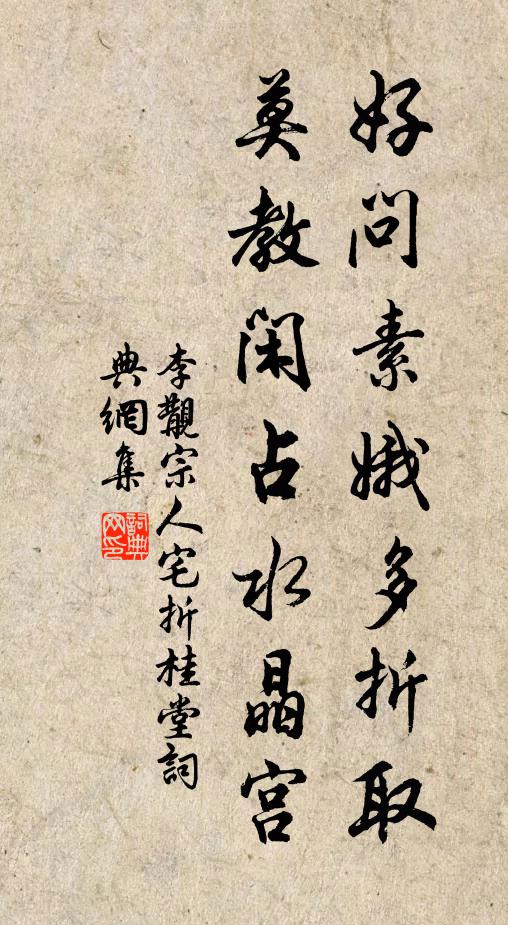 好問素娥多折取
莫教閑占水晶宮
李覯宗人宅折桂堂詞
典網集
詞典網印